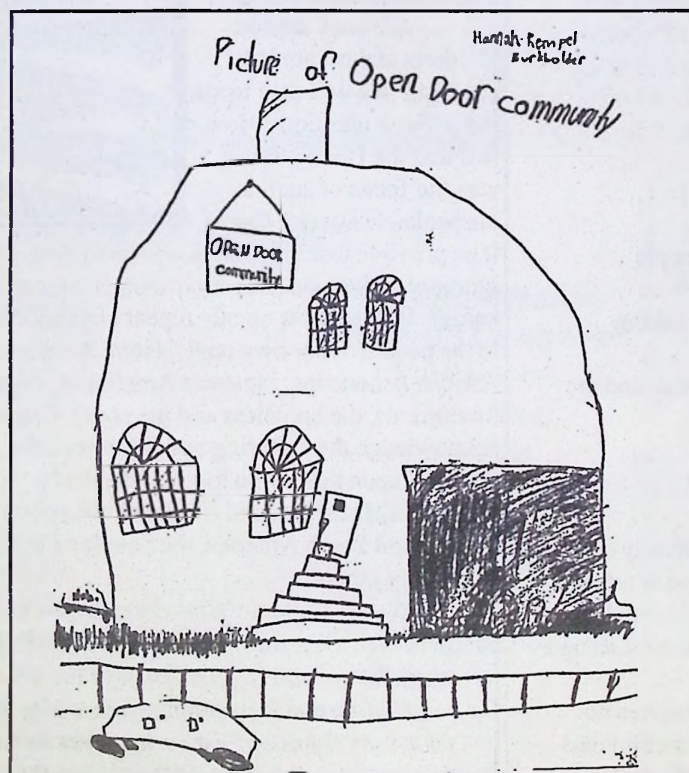 Hannah Rempel
Burkholder
Picture of Open Door community
OPEN DOOR
community
D° D°